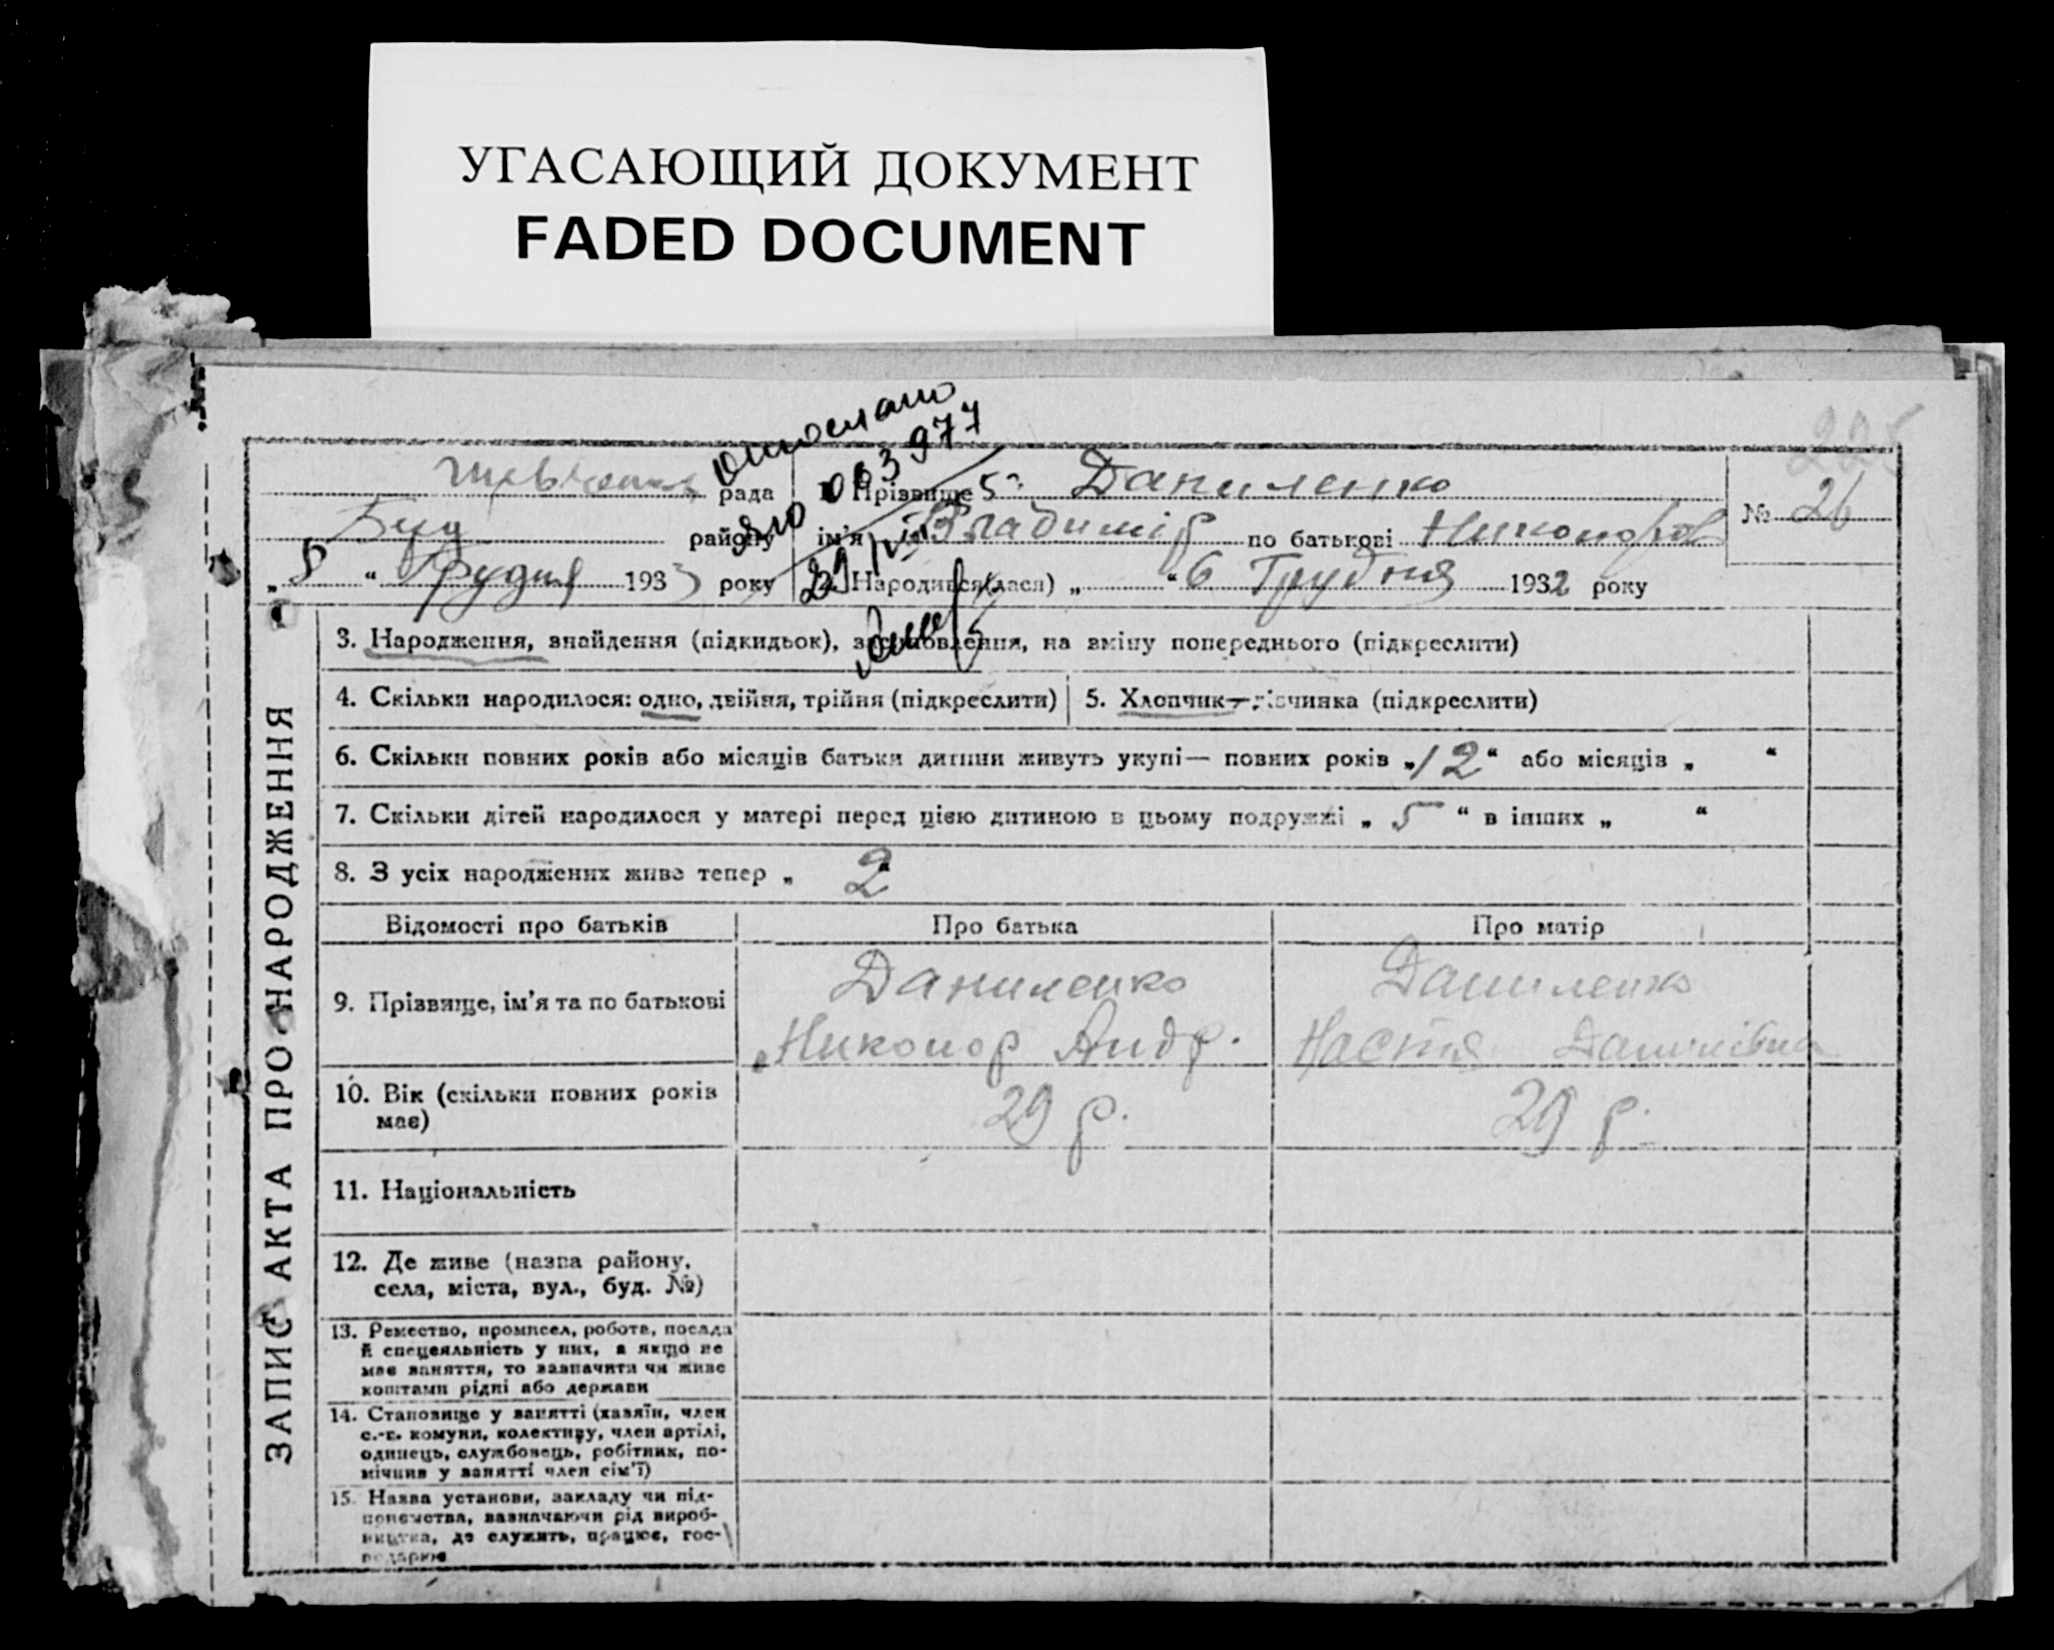 УГАСАЮЩИЙ ДОКУМЕНТ
FADED DOCUMENT
рада
1. Прізвище Даниленко
№ 26
району
ім'я Владимір по батькові Никоноров
„ 8 “ Грудня 1933 року
2. Народився(лася) „ “ 6 Грудня 1932 року
ЗАПИС АКТА ПРО НАРОДЖЕННЯ
3. Народження, знайдення (підкидьок), засиновлення, на зміну попереднього (підкреслити)
4. Скільки народилося: одно, двійня, трійня (підкреслити)
5. Хлопчик—дівчинка (підкреслити)
6. Скільки повних років або місяців батьки дитини живуть укупі— повних років „12“ або місяців „ “
7. Скільки дітей народилося у матері перед цією дитиною в цьому подружжі „ 5 “ в інших „ “
8. З усіх народжених живе тепер „ 2
Відомості про батьків
Про батька
Про матір
9. Прізвище, ім'я та по батькові
Даниленко
Никонор Андр.
Даниленко
Настя
10. Вік (скільки повних років
має)
29 р.
29 р.
11. Національність
12. Де живе (назва району,
села, міста, вул., буд. №)
13. Ремество, промисел, робота, посада
й спецеяльність у них, а якщо не
має заняття, то зазначити чи живе
коштами рідні або держави
14. Становище у занятті (хазяїн, член
с.-г. комуни, колективу, член артілі,
одинець, службовець, робітник, по-
мічник у занятті член сім'ї)
15. Назва установи, закладу чи під-
приємства, зазначаючи рід вироб-
ництва, де служить, працює, гос-
подарює